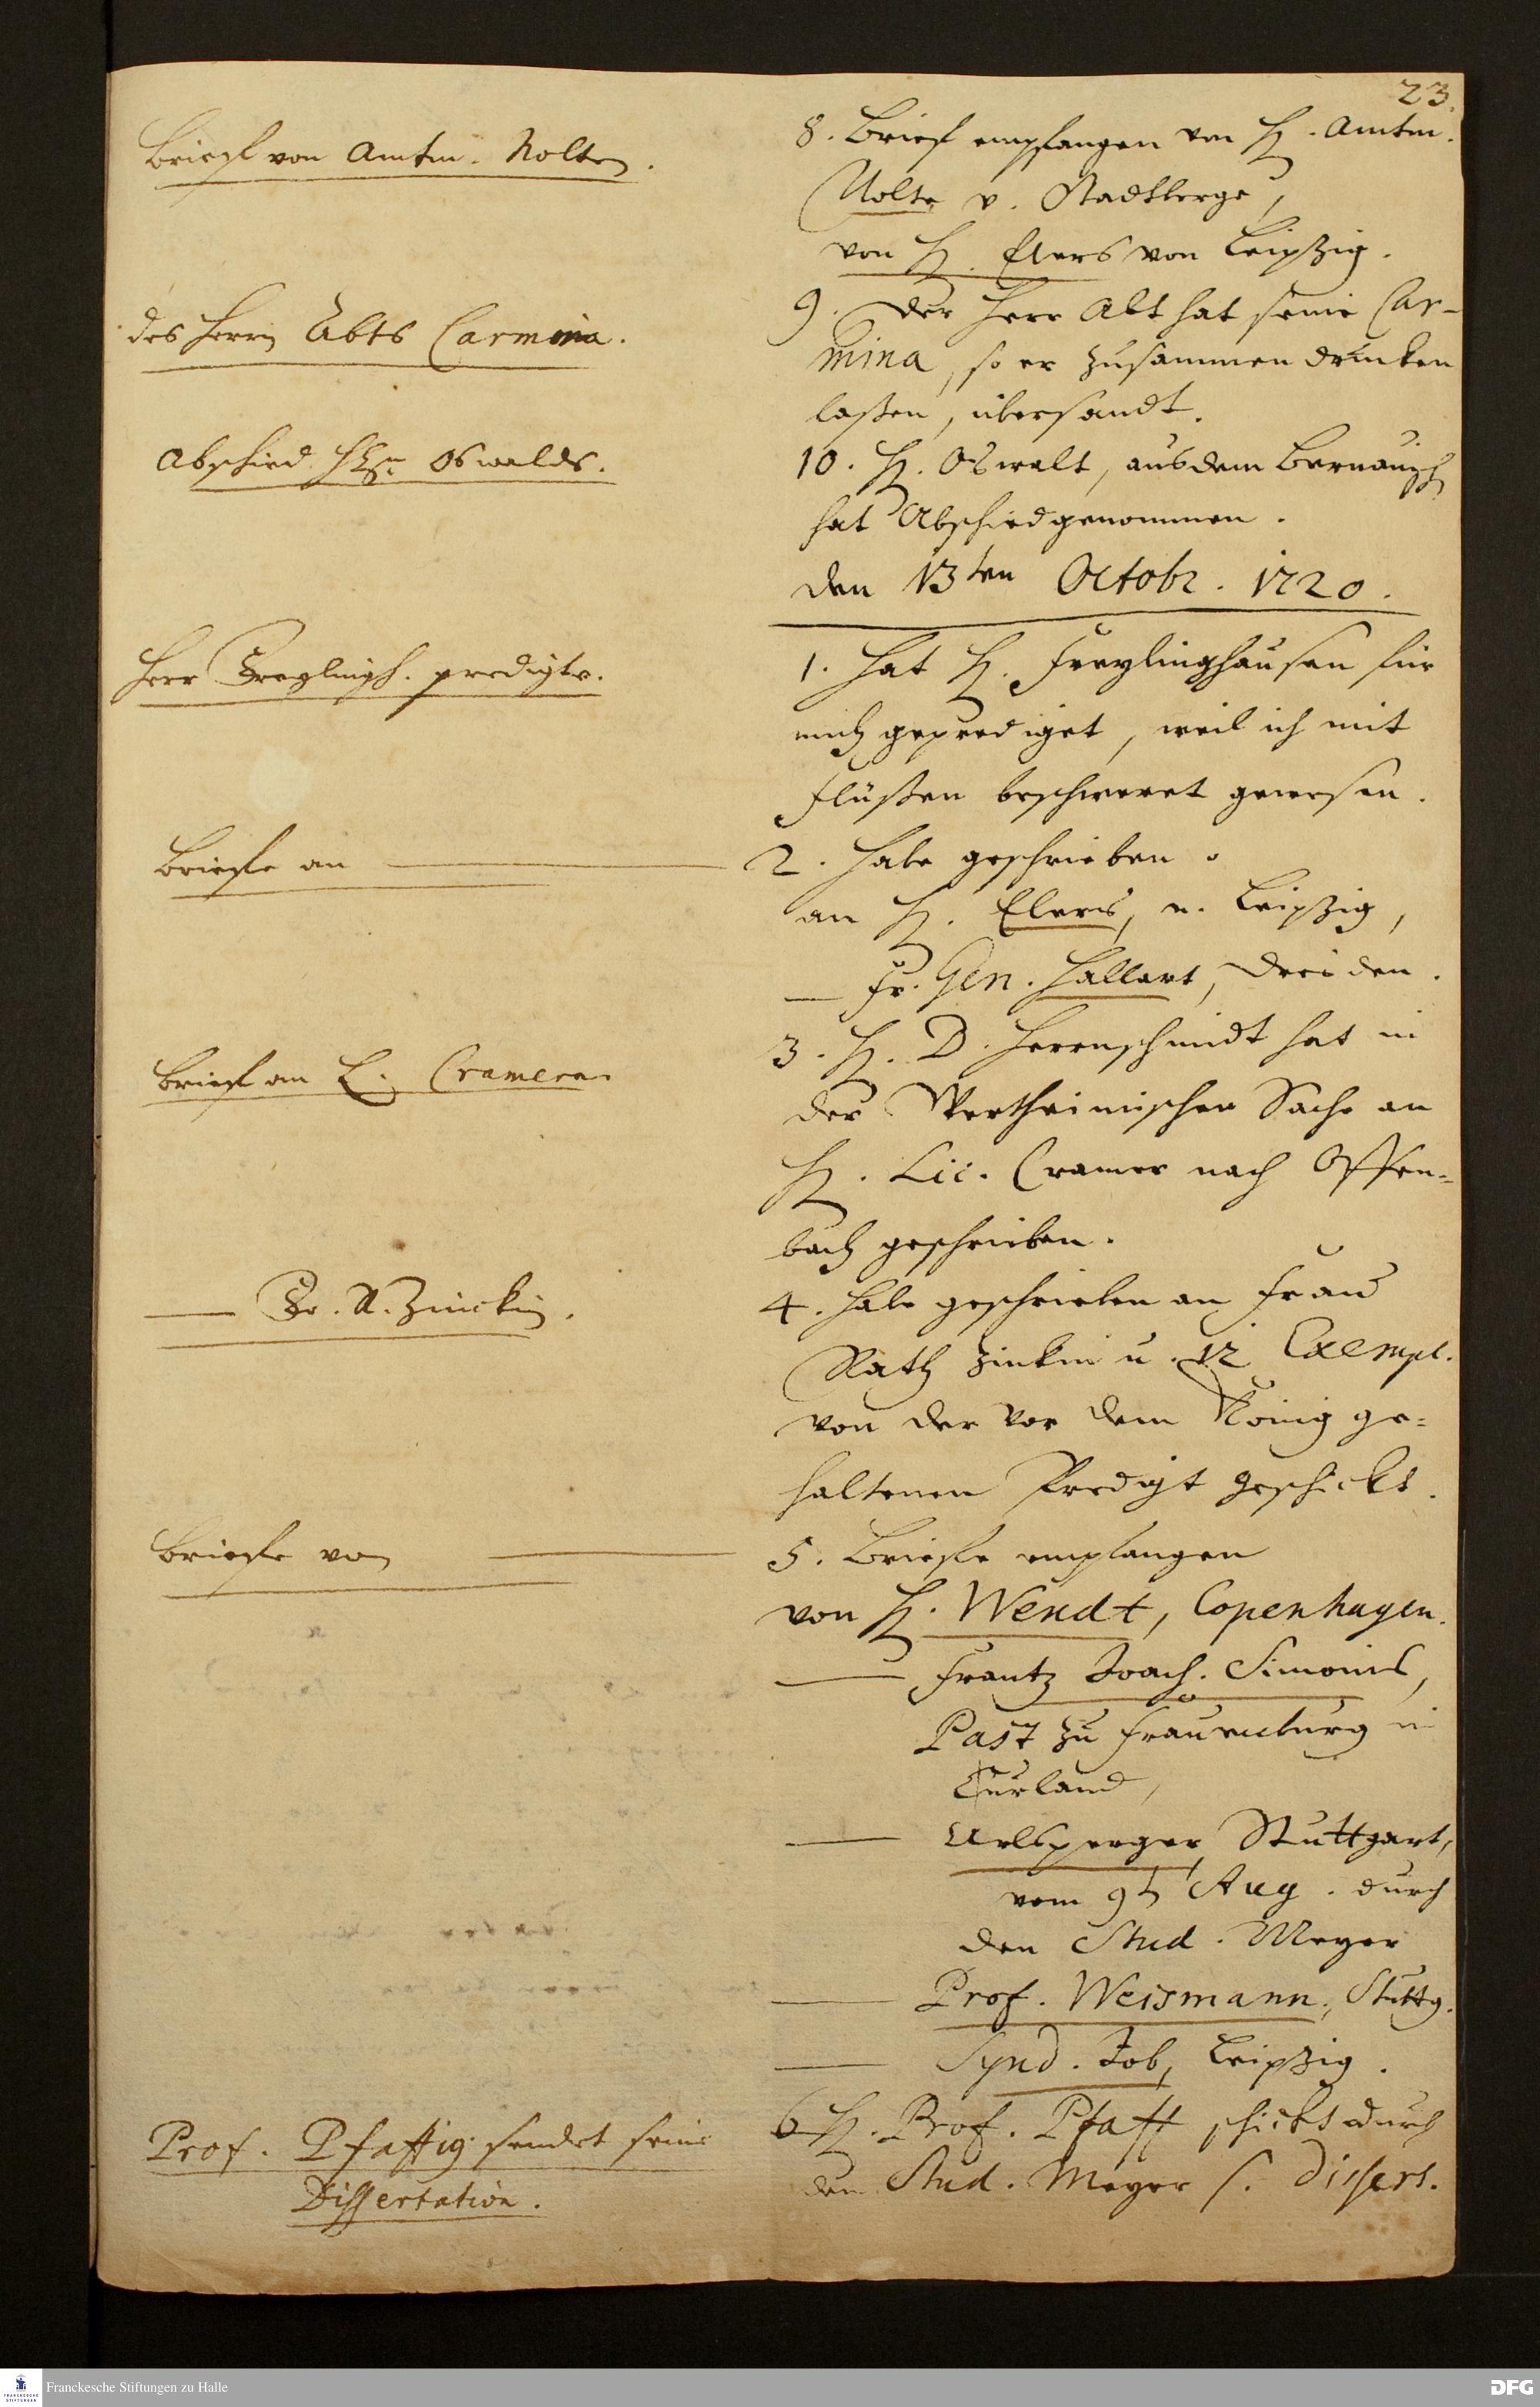 23.
Brief von Amtm. Nolten.
8. Brief empfangen von H. Amtm.
Nolte v. Stadtberge,
von H. Elers von Leipzig.
des Herrn Abts Carmina.
9. Der Herr Abt hat seine Car-
mina, so er zusammen drucken
laßen, übersandt.
Abschied H. Oswalds.
10. H. Oswalt, aus dem
hat Abschied genommen.
den 13ten Octobr. 1720.
Herr Freylingh. predigte.
1. Hat H. Freylinghausen für
mich geprediget, weil ich mit
Flüßen beschweret gewesen.
Briefe an
2. Habe geschrieben
an H. Elers, n. Leipzig,
— Fr. Gen. Hallart, Dresden.
Brief an L. Cramern.
3. H. D. Herrnschmidt hat in
der Wertheimischen Sache an
H. Lic. Cramer nach Offen=
bach geschrieben.
— Fr. R. Zinckin.
4. Habe geschrieben an Frau
Rath Zinkin u. 12 Exempl.
von der vor dem König ge=
haltenen Predigt geschickt.
Briefe von
5. Briefe empfangen
von H. Wendt, Copenhagen.
— Frantz Joach. Simonis,
Past zu Frauenburg in
Curland,
— Urlsperger, Stuttgart,
vom 9t Aug. durch
den Stud. Meyer
— Prof. Weismann, Stuttg.
— Synd. Job, Leipzig.
Prof. Pfaffig sendet seine
Dissertation.
6 H. Prof. Pfaff schickt durch
den Stud. Meyer s. Dissert.
Franckesche Stiftungen zu Halle
DFG